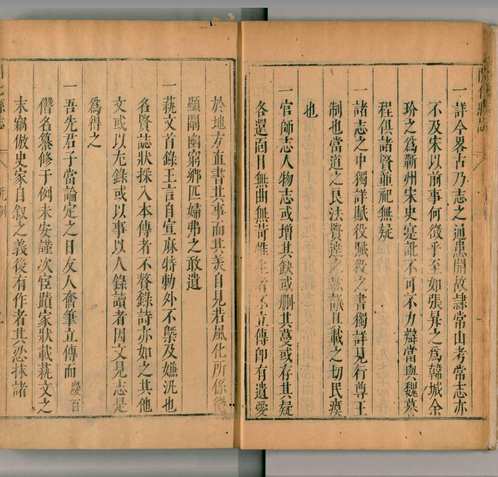 一詳今畧古乃志之通患開故隷常山考常志亦
不及宋以前事何徵乎至如張昇之爲韓城余
玠之爲蘄州宋史寔訛不可不力辯當與魏某
程俱諸賢並祀無疑
一諸志之中獨詳賦役賦役之書獨詳見行尊王
制也當道之民法賢達之 議直載之切民瘼
也
一官師志人物志或增其缺或刪其蔓或存其疑
各還面目無曲無苟 生者不立傳卽有遺愛
於地方直書其事而其美自見若風化所係
顯闡幽窮鄉匹婦弗之敢遺
一蓺文首錄王言自宣麻特勅外不槩及嫌汎也
名賢誌狀採入本傳者不瞀錄詩亦如之其他
文或以左錄或以事以人錄讀者因文見志是
爲得之
一吾先君子當論定之日友人奮筆立傳而慶百
僭名纂修于例未安謹次宦蹟家狀載蓺文之
末竊倣史家自叙之義後有作者其恕抹諸